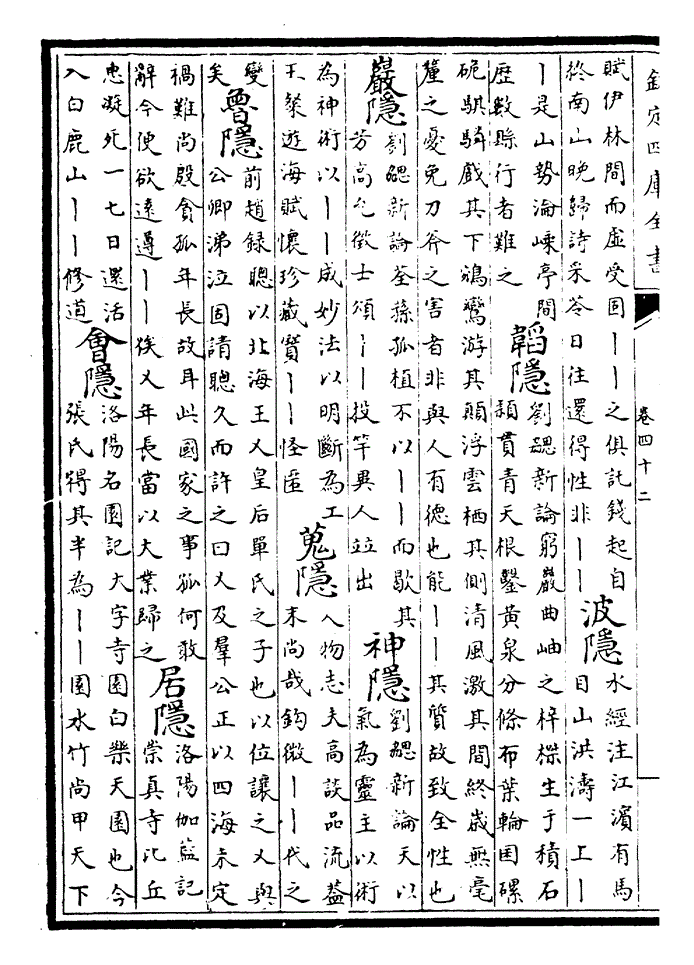 欽定四庫全書
卷四十二
賦伊林間而虛受固丨丨之俱託錢起自
終南山晚歸詩采苓日往還得性非丨丨
波隱
水經注江濱有馬
目山洪濤一上丨
丨是山勢淪嵊亭間
歴數縣行者難之
韜隱
劉勰新論窮巖曲岫之梓櫟生于積石
頴貫青天根鑿黃泉分條布葉輪囷磥
硊騏驎戲其下鵷鸞游其顛浮雲栖其側清風激其間終歲無毫
釐之憂免刀斧之害者非與人有德也能丨丨其質故致全性也
巖隱
劉勰新論荃蓀孤植不以丨丨而歇其
芳高允徵士頌丨丨投竿異人竝出
神隱
劉勰新論天以
氣為靈主以術
為神術以丨丨成妙法以明斷為工
王粲遊海賦懷珍藏寶丨丨怪匿
蒐隱
人物志夫高談品流葢
末尚哉鈎微丨丨代之
變
矣
魯隱
前趙録聰以北海王乂皇后單氏之子也以位讓之乂與
公卿涕泣固請聰久而許之曰乂及羣公正以四海未定
禍難尚殷貪孤年長故耳此國家之事孤何敢
辭今便欲遠遵丨丨俟乂年長當以大業歸之
居隱
洛陽伽藍記
崇真寺比丘
惠凝死一七日還活
入白鹿山丨丨修道
會隱
洛陽名園記大字寺園白樂天園也今
張氏得其半為丨丨園水竹尚甲天下